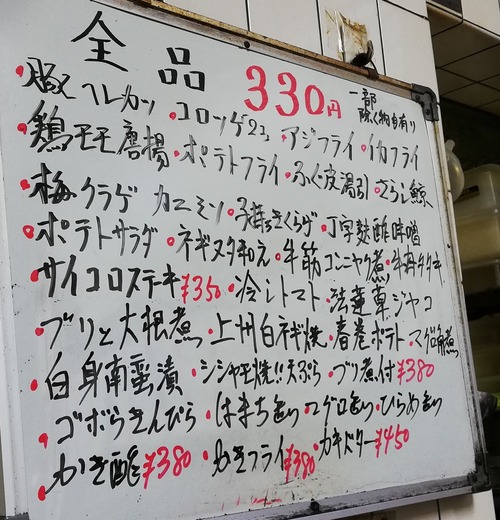 全品 330円 一部除く物有り
・豚ヒレカツ ・コロッケ2コ ・アジフライ ・イカフライ
・鶏モモ唐揚 ・ポテトフライ ・ふぐ皮湯引 ・さらし鯨
・梅クラゲ カニミソ ・子持きくらげ ・丁字麩酢味噌
・ポテトサラダ ・ネギヌタ和え ・牛筋コンニャク煮
・サイコロステーキ ¥350 ・冷しトマト ・法蓮草ジャコ
・ブリと大根煮 ・上州白ネギ焼 ・春巻ポテト ・マグロ角煮
・白身南蛮漬 ・シシャモ焼!!天ぷら ・ブリ煮付 ¥380
・ゴボウきんぴら ・はまち造り ・マグロ造り ・ひらめ造り
・かき酢 ¥380 ・かきフライ ¥380 ・カキバター ¥450